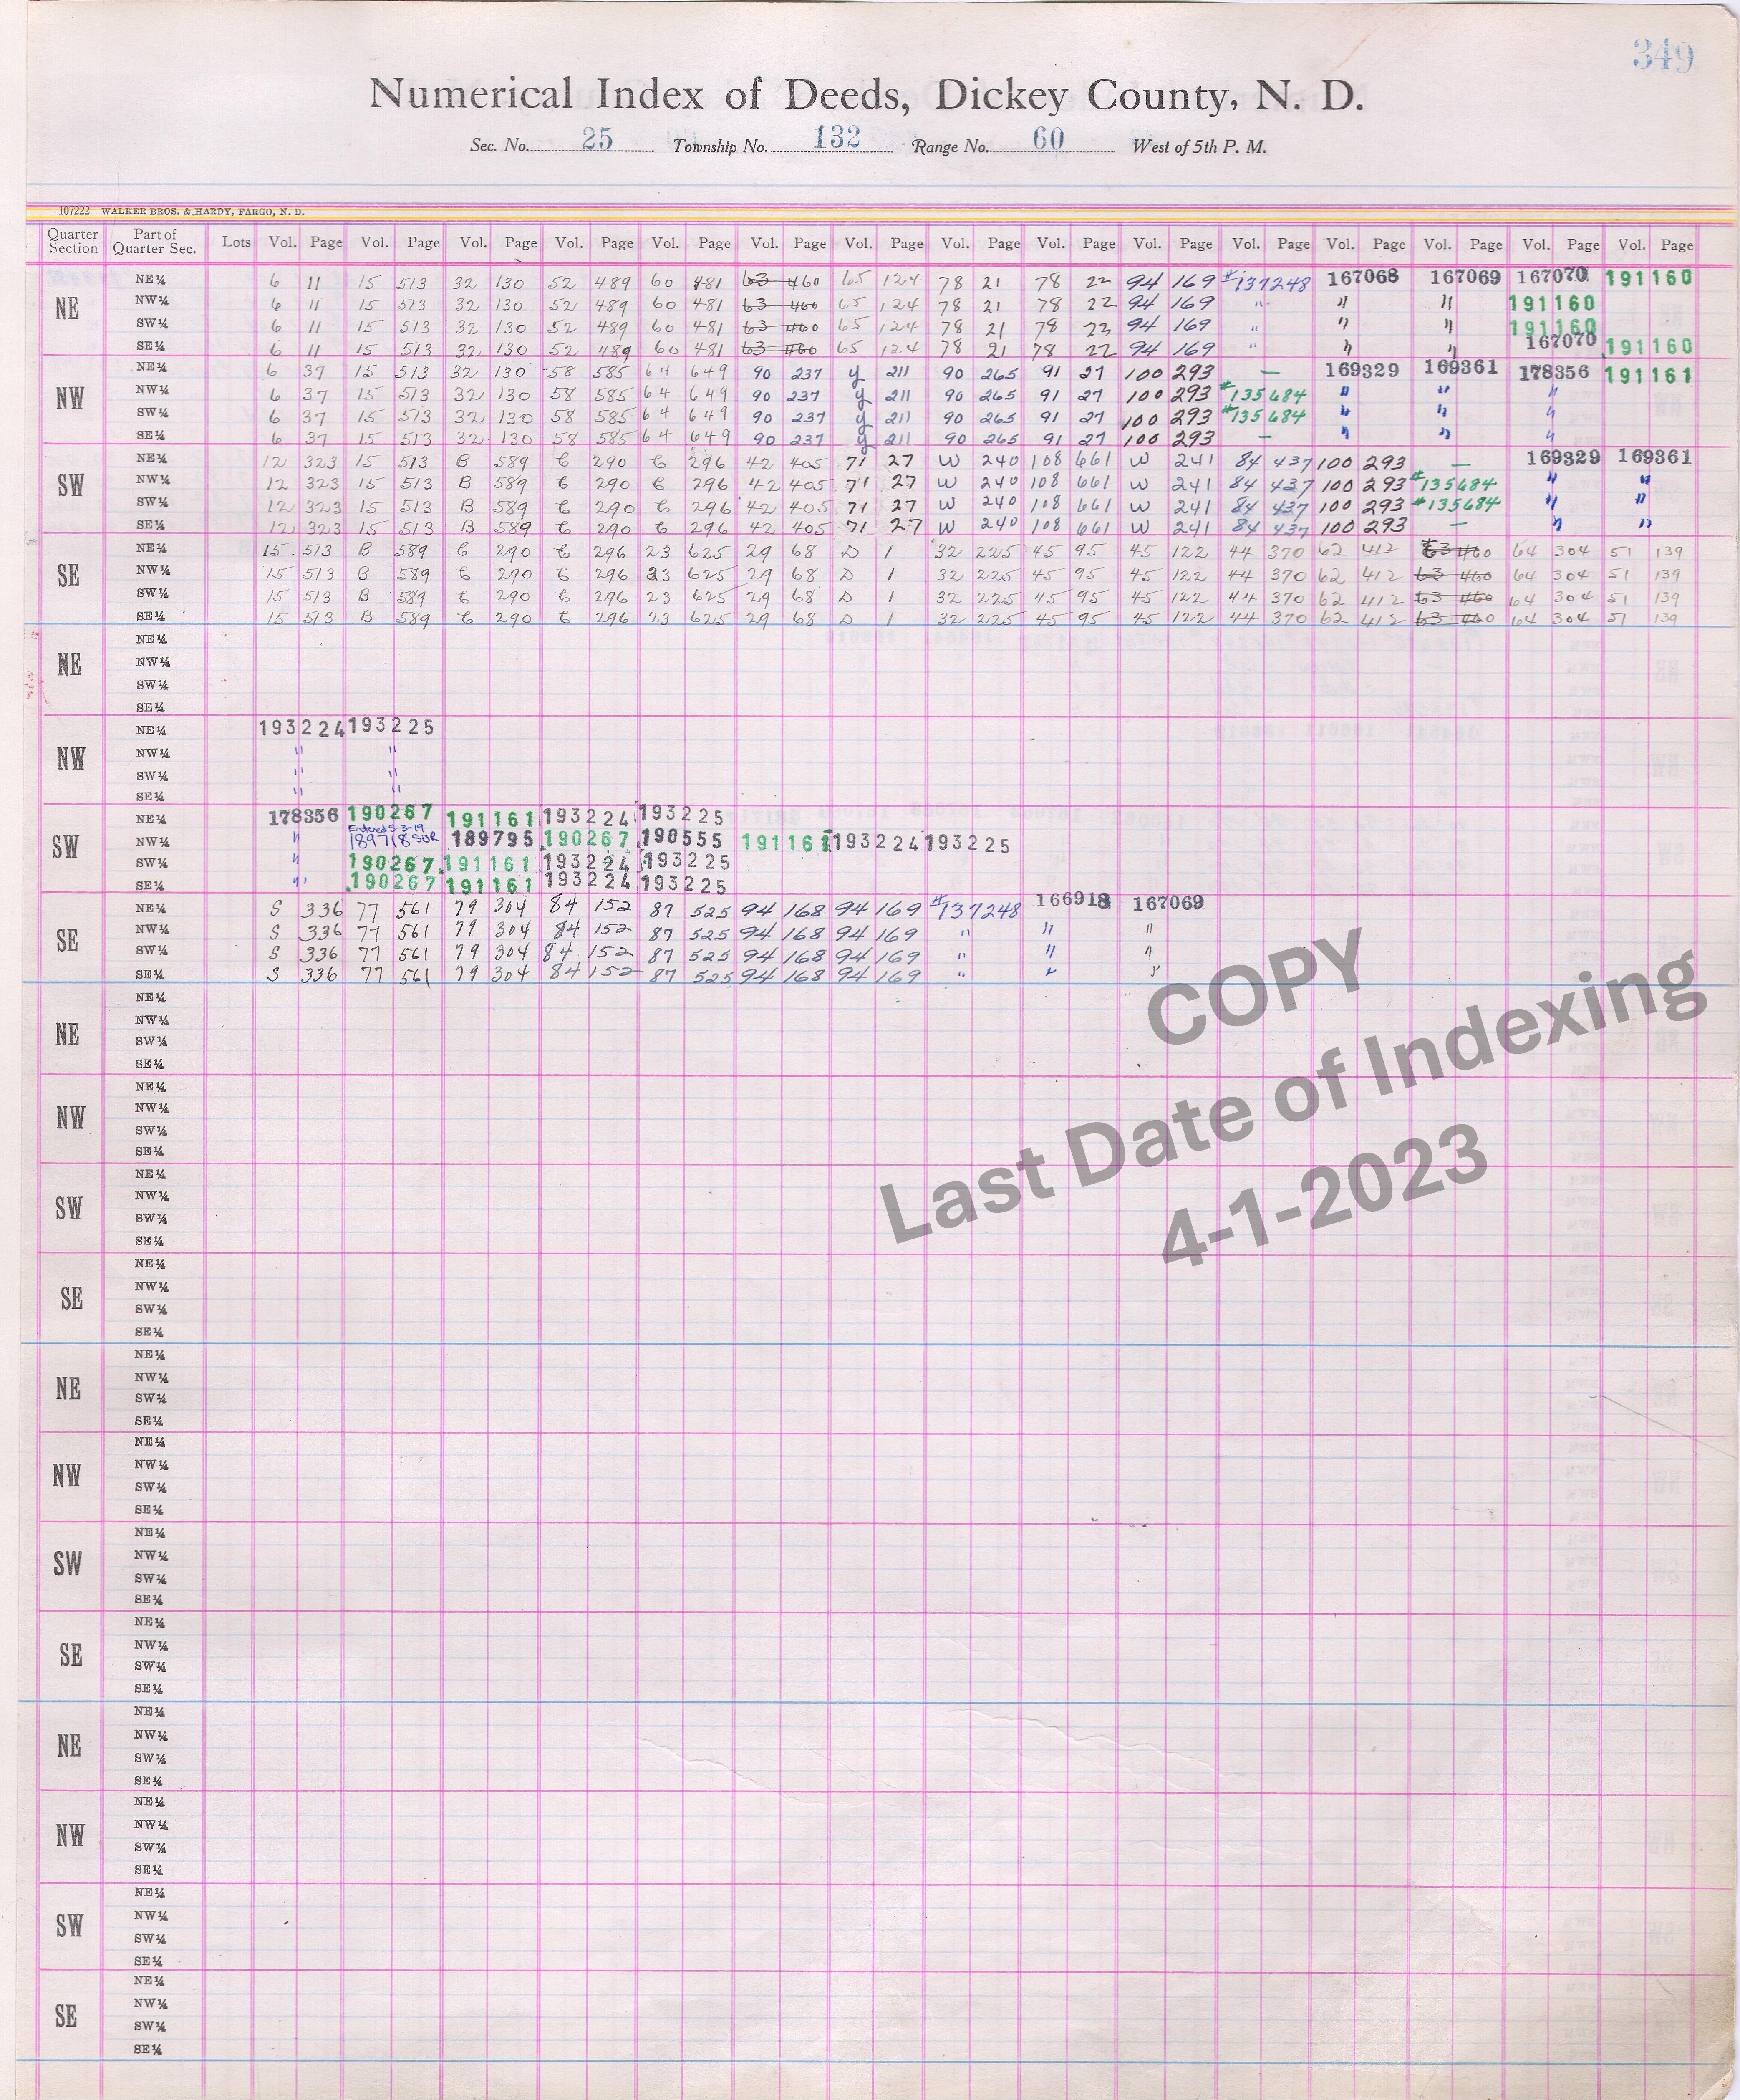 349
Numerical Index of Deeds, Dickey County, N. D.
Sec. No. 25 Township No. 132 Range No. 60 West of 5th P. M.
107222 WALKER BROS. & HARDY, FARGO, N. D.
Quarter Section Part of Quarter Sec. Lots Vol. Page Vol. Page Vol. Page Vol. Page Vol. Page Vol. Page Vol. Page Vol. Page Vol. Page Vol. Page Vol. Page Vol. Page Vol. Page Vol. Page Vol. Page
NE NE¼ 6 11 15 513 32 130 52 489 60 481 63 460 65 124 78 21 78 22 94 169 #137248 167068 167069 167070 191160
NW¼ 6 11 15 513 32 130 52 489 60 481 63 460 65 124 78 21 78 22 94 169 " " " 191160
SW¼ 6 11 15 513 32 130 52 489 60 481 63 460 65 124 78 21 78 22 94 169 " " " 191160
SE¼ 6 11 15 513 32 130 52 489 60 481 63 460 65 124 78 21 78 22 94 169 " " " 167070 191160
NW NE¼ 6 37 15 513 32 130 58 585 64 649 90 237 y 211 90 265 91 27 100 293 — 169329 169361 178356 191161
NW¼ 6 37 15 513 32 130 58 585 64 649 90 237 y 211 90 265 91 27 100 293 #135684 " " "
SW¼ 6 37 15 513 32 130 58 585 64 649 90 237 y 211 90 265 91 27 100 293 #135684 " " "
SE¼ 6 37 15 513 32 130 58 585 64 649 90 237 y 211 90 265 91 27 100 293 — " " "
SW NE¼ 12 323 15 513 B 589 C 290 C 296 42 405 71 27 W 240 108 661 W 241 84 437 100 293 — 169329 169361
NW¼ 12 323 15 513 B 589 C 290 C 296 42 405 71 27 W 240 108 661 W 241 84 437 100 293 #135684 " "
SW¼ 12 323 15 513 B 589 C 290 C 296 42 405 71 27 W 240 108 661 W 241 84 437 100 293 #135684 " "
SE¼ 12 323 15 513 B 589 C 290 C 296 42 405 71 27 W 240 108 661 W 241 84 437 100 293 — " "
SE NE¼ 15 513 B 589 C 290 C 296 23 625 29 68 D 1 32 225 45 95 45 122 44 370 62 412 63 460 64 304 51 139
NW¼ 15 513 B 589 C 290 C 296 23 625 29 68 D 1 32 225 45 95 45 122 44 370 62 412 63 460 64 304 51 139
SW¼ 15 513 B 589 C 290 C 296 23 625 29 68 D 1 32 225 45 95 45 122 44 370 62 412 63 460 64 304 51 139
SE¼ 15 513 B 589 C 290 C 296 23 625 29 68 D 1 32 225 45 95 45 122 44 370 62 412 63 460 64 304 51 139
NE NE¼
NW¼
SW¼
SE¼
NW NE¼ 193224 193225
NW¼ " "
SW¼ " "
SE¼ " "
SW NE¼ 178356 190267 191161 193224 193225
Entered 5-3-19
NW¼ " 189718 SUR 189795 190267 190555 191161 193224 193225
SW¼ " 190267 191161 193224 193225
SE¼ " 190267 191161 193224 193225
SE NE¼ S 336 77 561 79 304 84 152 87 525 94 168 94 169 #137248 166918 167069
NW¼ S 336 77 561 79 304 84 152 87 525 94 168 94 169 " " "
SW¼ S 336 77 561 79 304 84 152 87 525 94 168 94 169 " " "
SE¼ S 336 77 561 79 304 84 152 87 525 94 168 94 169 " " "
NE NE¼
NW¼
SW¼
SE¼
NW NE¼
NW¼
SW¼
SE¼
SW NE¼
NW¼
SW¼
SE¼
SE NE¼
NW¼
SW¼
SE¼
COPY
Last Date of Indexing
4-1-2023
NE NE¼
NW¼
SW¼
SE¼
NW NE¼
NW¼
SW¼
SE¼
SW NE¼
NW¼
SW¼
SE¼
SE NE¼
NW¼
SW¼
SE¼
NE NE¼
NW¼
SW¼
SE¼
NW NE¼
NW¼
SW¼
SE¼
SW NE¼
NW¼
SW¼
SE¼
SE NE¼
NW¼
SW¼
SE¼